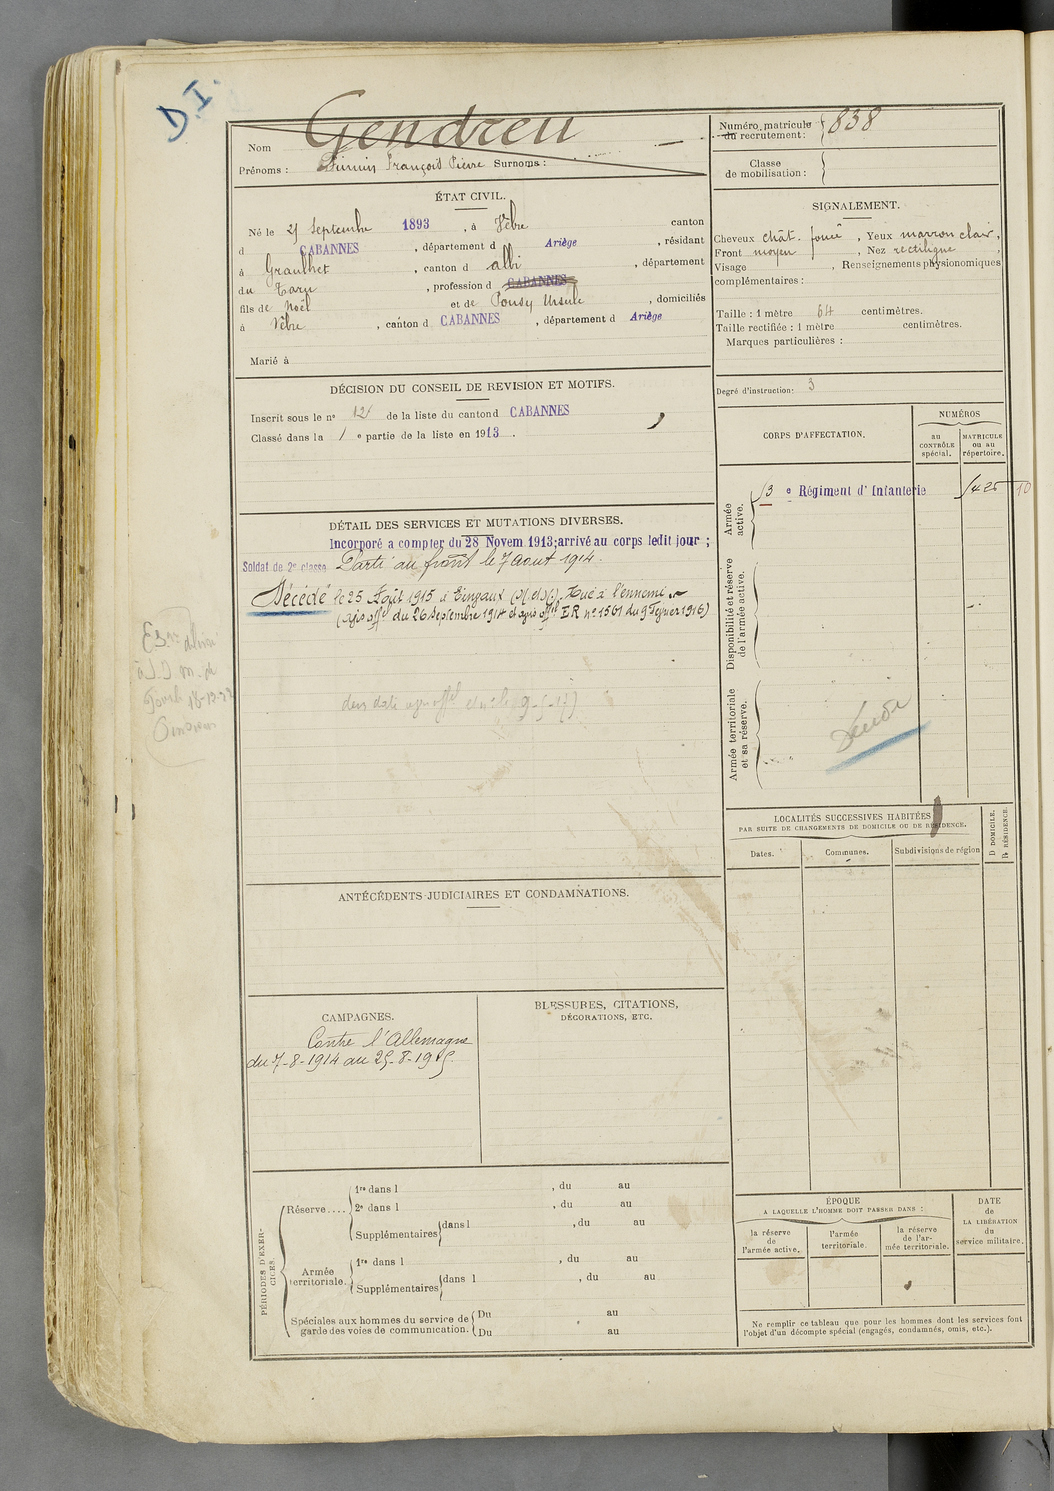 D.I.
Nom Gendreu
Prénoms : Firmin François Pierre Surnoms :
Numéro matricule du recrutement : 838
Classe de mobilisation :
ÉTAT CIVIL.
Né le 27 Septembre 1893, à Vèbre canton
d CABANNES, département d Ariège, résidant
à Graulhet, canton d Albi, département
du Tarn, profession d CABANNES
fils de Noël et de Pousy Ursule, domiciliés
à Vèbre, canton d CABANNES, département d Ariège
Marié à
SIGNALEMENT.
Cheveux chât. foncé, Yeux marron clair,
Front moyen, Nez rectiligne,
Visage , Renseignements physionomiques
complémentaires :
Taille : 1 mètre 64 centimètres.
Taille rectifiée : 1 mètre centimètres.
Marques particulières :
Degré d'instruction: 3
DÉCISION DU CONSEIL DE REVISION ET MOTIFS.
Inscrit sous le nº de la liste du canton d CABANNES
Classé dans la 1 e partie de la liste en 1913.
CORPS D'AFFECTATION.
NUMÉROS
au CONTRÔLE spécial.
MATRICULE ou au répertoire.
Armée active.
e Régiment d'Infanterie
Disponibilité et réserve de l'armée active.
Armée territoriale et sa réserve.
DÉTAIL DES SERVICES ET MUTATIONS DIVERSES.
Incorporé a compter du 28 Novem. 1913; arrivé au corps ledit jour ;
Soldat de 2e classe Parti au front le 7 aout 1914.
Décédé le 25 Août 1915 à Einvaux (M.et.M.). Tué à l'ennemi
(Avis offel du 26 Septembre 1914 et avis offel E.R nº 1561 du 9 Février 1916)
LOCALITÉS SUCCESSIVES HABITÉES
PAR SUITE DE CHANGEMENTS DE DOMICILE OU DE RÉSIDENCE.
Dates.
Communes.
Subdivisions de région
D DOMICILE.
R RÉSIDENCE.
ANTÉCÉDENTS JUDICIAIRES ET CONDAMNATIONS.
CAMPAGNES.
Contre l'Allemagne
du 7-8-1914 au 25-8-1915
BLESSURES, CITATIONS,
DÉCORATIONS, ETC.
PÉRIODES D'EXERCICES.
Réserve....
1re dans l , du au
2e dans l , du au
Supplémentaires dans l , du au
Armée territoriale.
1re dans l , du au
Supplémentaires dans l , du au
Spéciales aux hommes du service de garde des voies de communication.
Du au
Du au
ÉPOQUE
A LAQUELLE L'HOMME DOIT PASSER DANS :
la réserve de l'armée active.
l'armée territoriale.
la réserve de l'armée territoriale.
DATE de LA LIBÉRATION du service militaire.
Ne remplir ce tableau que pour les hommes dont les services font
l'objet d'un décompte spécial (engagés, condamnés, omis, etc.).